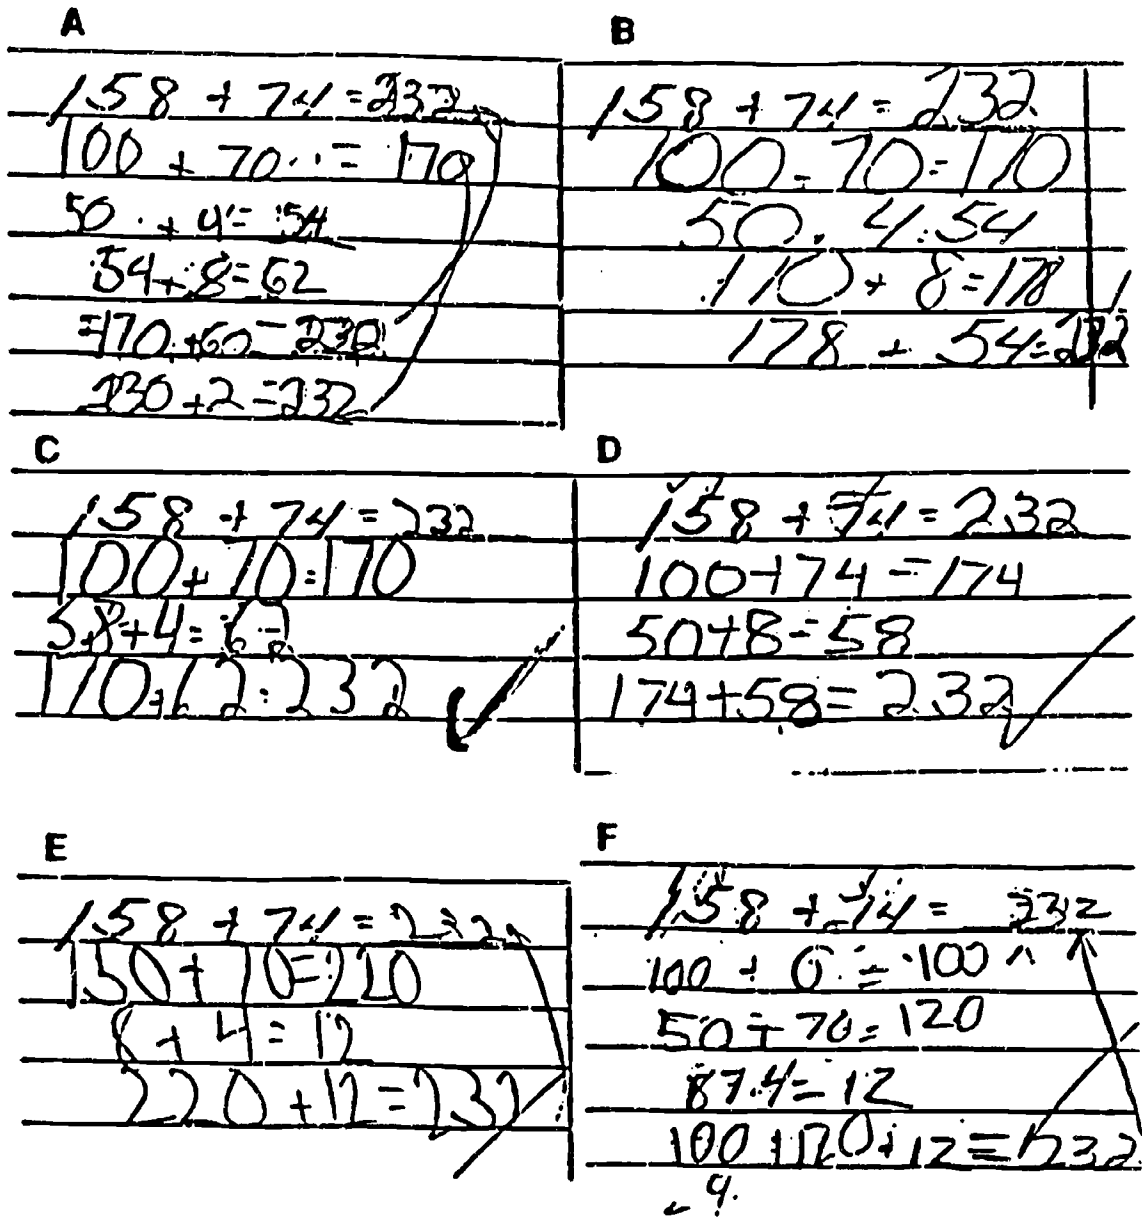 A
158 + 74 = 232
100 + 70 = 170
50 + 4 = 54
54 + 8 = 62
=170 + 60 = 230
230 + 2 = 232
B
158 + 74 = 232
100 - 70 = 170
50 . 4 : 54
170 + 8 = 178
178 + 54 = 232
C
158 + 74 = 232
100 + 70 = 170
58 + 4 = 62
170 + 62 = 232
D
158 + 74 = 232
100 + 74 = 174
50 + 8 = 58
174 + 58 = 232
E
158 + 74 = 232
150 + 70 = 220
8 + 4 = 12
220 + 12 = 232
F
158 + 74 = 232
100 + 0 = 100
50 + 70 = 120
8 + 4 = 12
100 + 120 + 12 = 232
9.